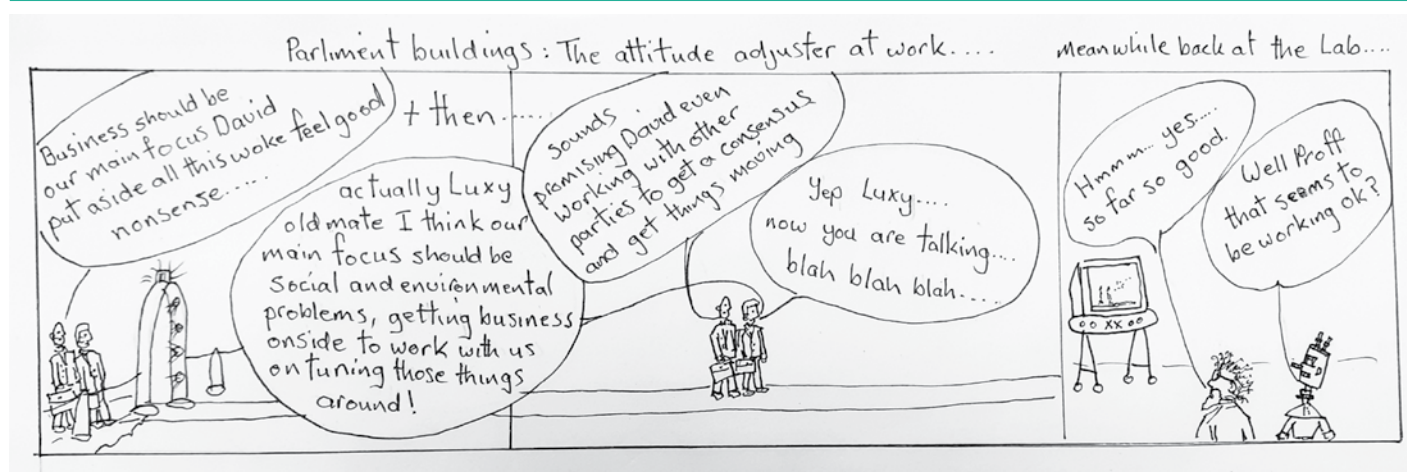 Parliment buildings: The attitude adjuster at work....
Meanwhile back at the Lab....
Business should be
our main focus David
put aside all this woke feel good
nonsense.....
+ then.....
actually Luxy
old mate I think our
main focus should be
social and environmental
problems, getting business
onside to work with us
on tuning those things
around!
sounds
promising David even
working with other
parties to get a consensus
and get things moving
Yep Luxy....
now you are talking....
blah blah blah.....
Hmmm... yes.....
so far so good.
Well Proff
that seems to
be working ok?
XX